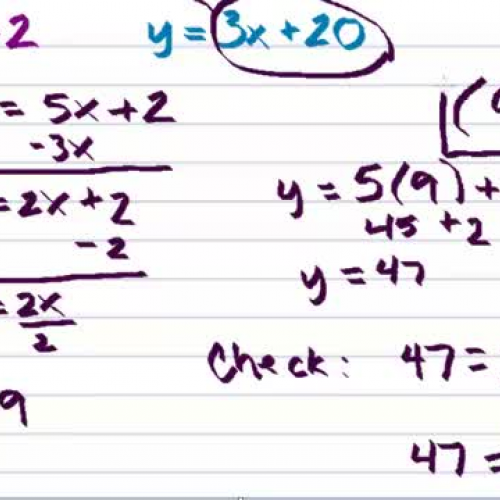 2 y = 3x + 20
= 5x + 2
-3x
= 2x + 2
- 2
= 2x/2
9
(
y = 5(9) +
45 + 2
y = 47
Check: 47 =
47 =